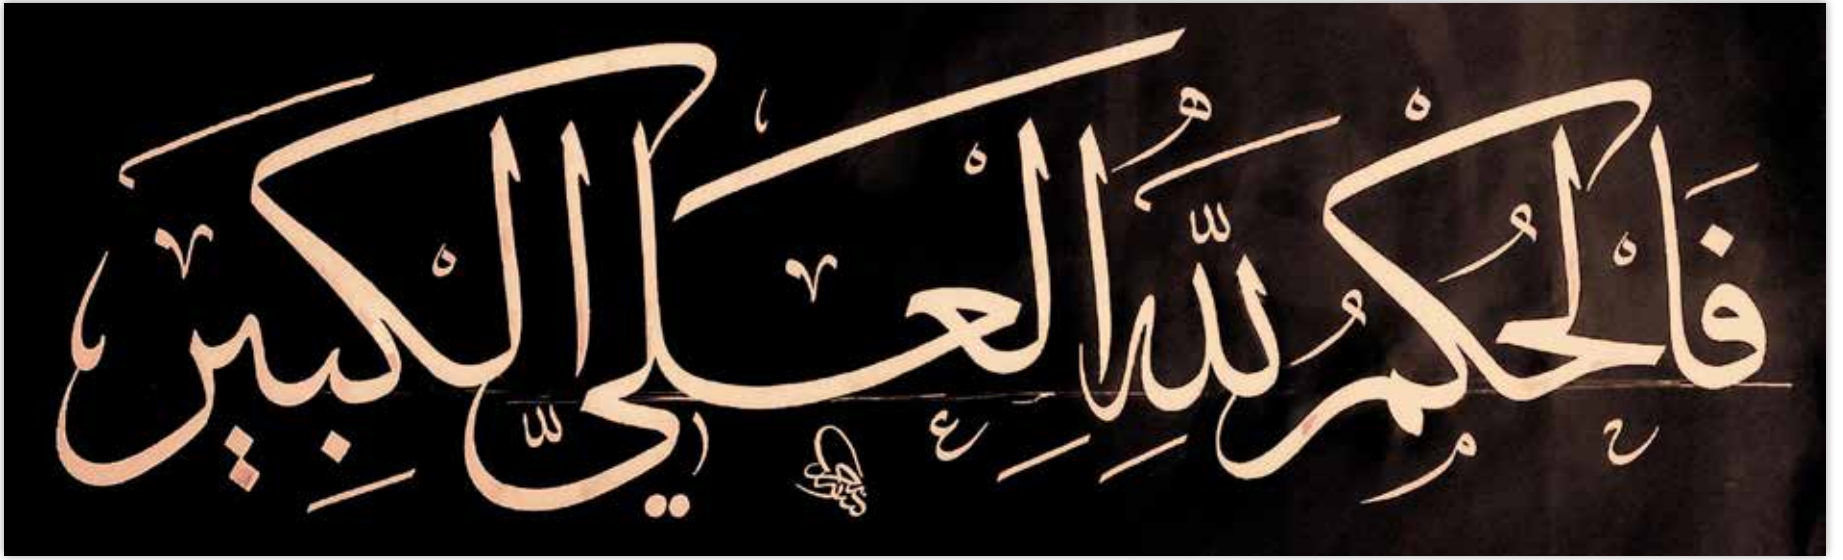 فَالْحُكْمُ لِلَّهِ الْعَلِيِّ الْكَبِيرِ